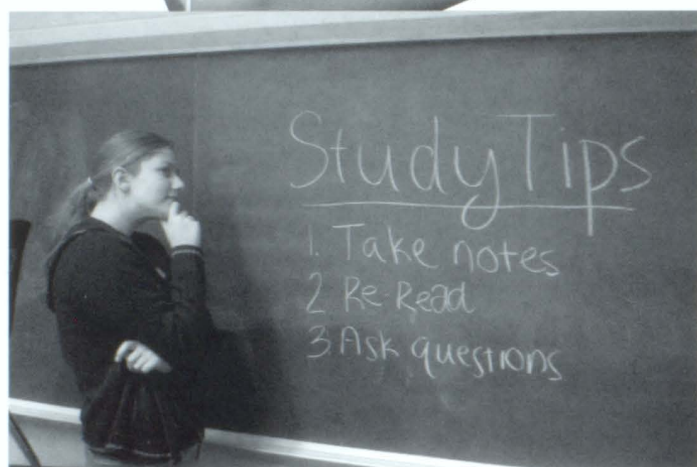 Study Tips
1. Take notes
2 Re-Read
3. Ask questions